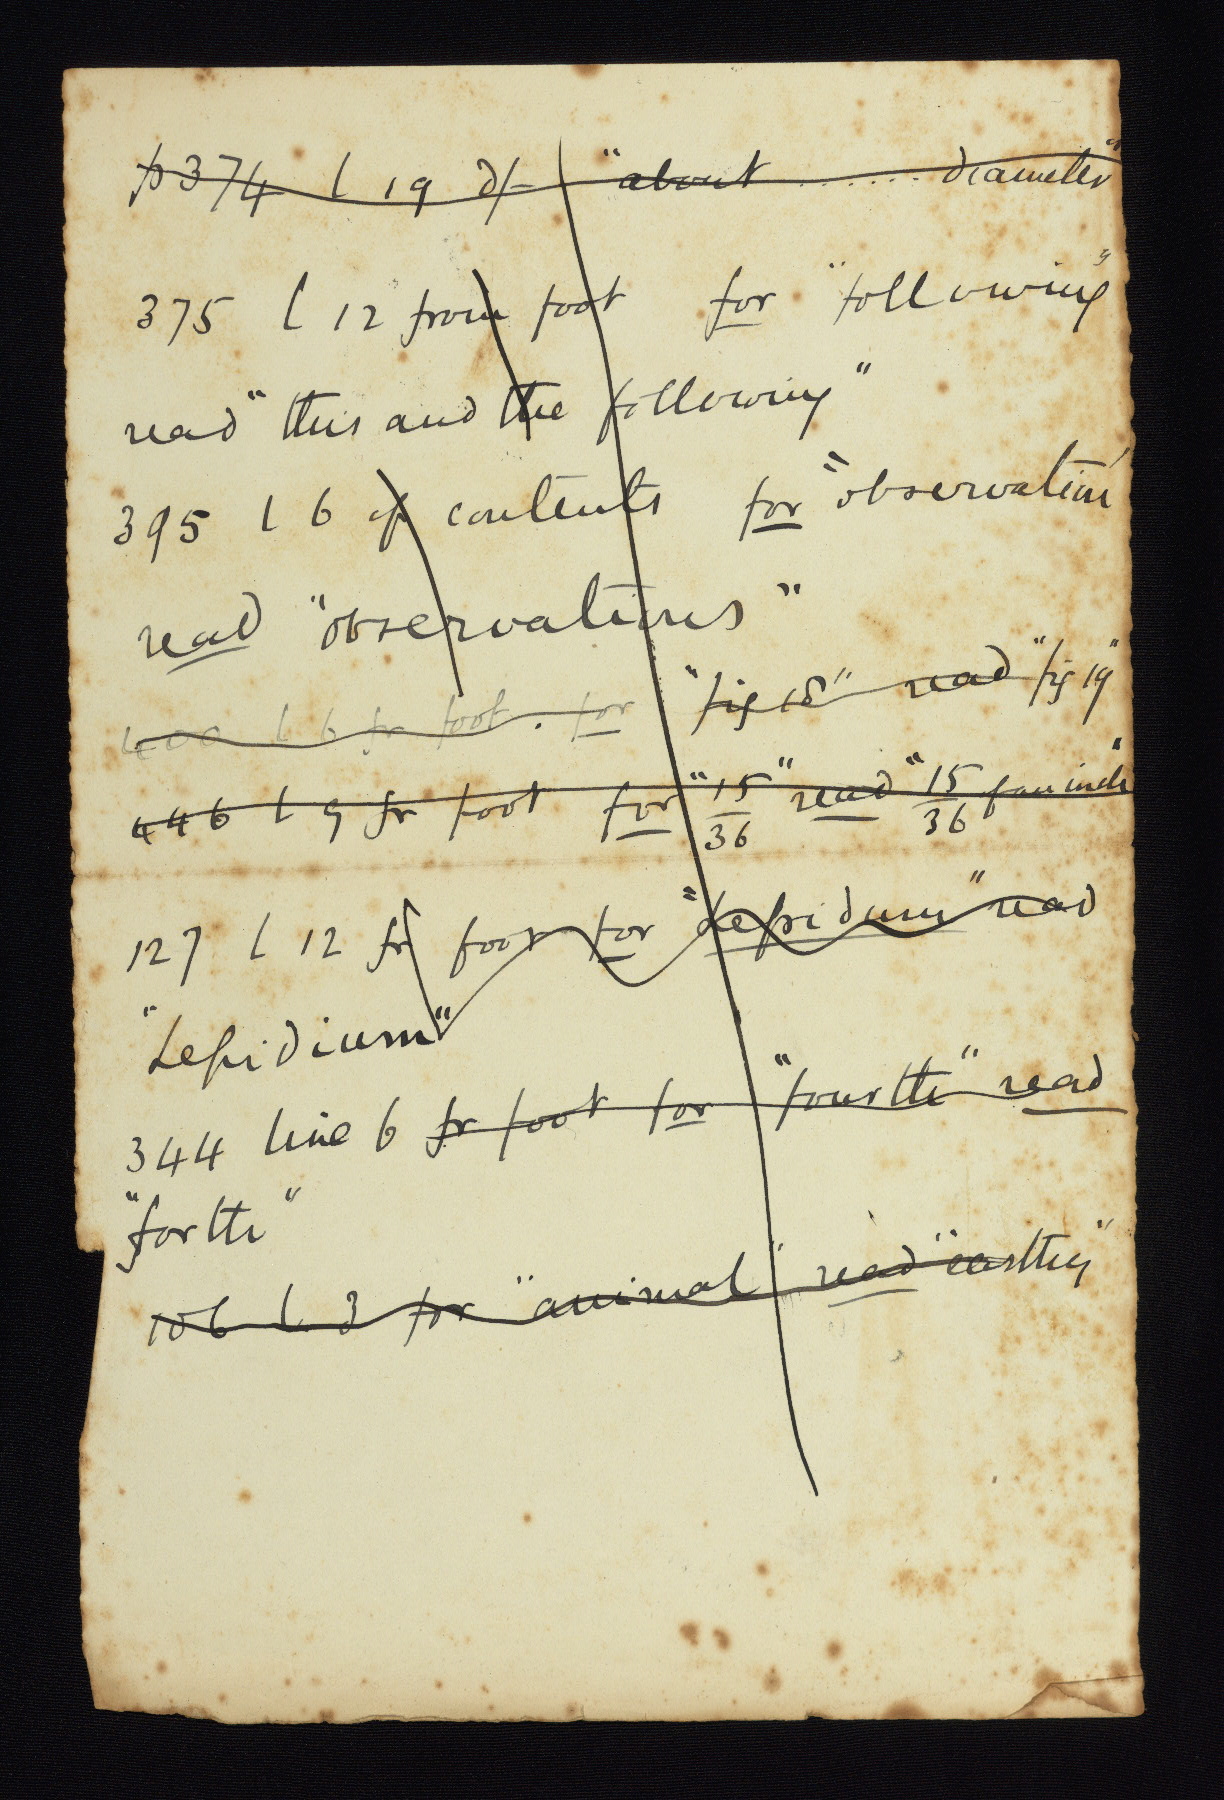 p 374 l 19 d/- "about ....... diameter"
375 l 12 from foot for "following"
read "this and the following"
395 l 6 of contents for "observation"
read "observations"
400 l 6 fr foot. for "fig 18" read "fig 19"
446 l 9 fr foot for "15/36" read "15/36 of an inch"
127 l 12 fr foot for "Lepidum" read
"Lepidium"
344 line 6 fr foot for "fourth" read
"forth"
106 l. 3 for "animal" read "earthy"